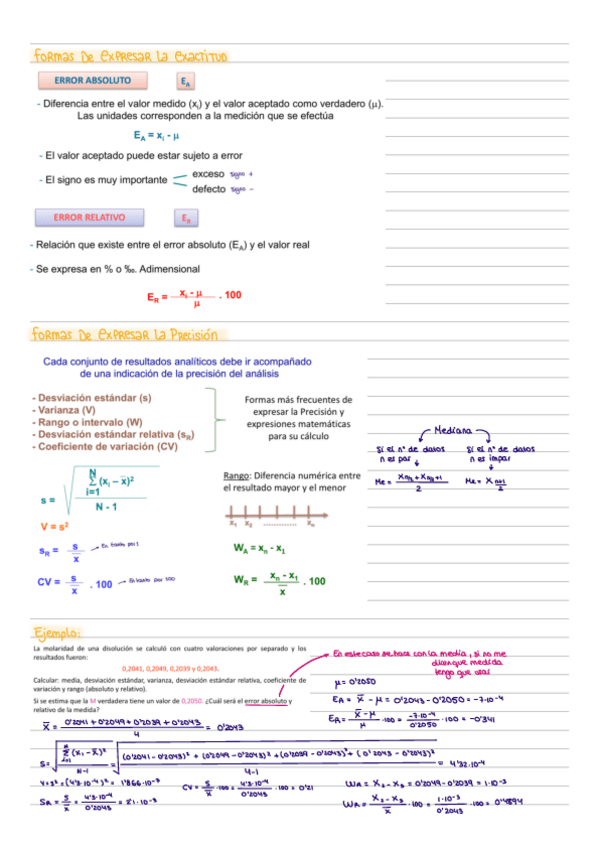 Formas de expresar la exactitud
ERROR ABSOLUTO E_A
- Diferencia entre el valor medido (x_i) y el valor aceptado como verdadero (μ).
Las unidades corresponden a la medición que se efectúa
E_A = x_i - μ
- El valor aceptado puede estar sujeto a error
- El signo es muy importante
exceso signo +
defecto signo -
ERROR RELATIVO E_R
- Relación que existe entre el error absoluto (E_A) y el valor real
- Se expresa en % o ‰. Adimensional
E_R = (x_i - μ) / μ . 100
Formas de expresar la Precisión
Cada conjunto de resultados analíticos debe ir acompañado
de una indicación de la precisión del análisis
- Desviación estándar (s)
- Varianza (V)
- Rango o intervalo (W)
- Desviación estándar relativa (s_R)
- Coeficiente de variación (CV)
Formas más frecuentes de
expresar la Precisión y
expresiones matemáticas
para su cálculo
Mediana
Si el nº de datos
n es par
Me = (X_n/2 + X_n/2+1) / 2
Si el nº de datos
n es impar
Me = X_(n+1)/2
s = √( Σ_{i=1}^{N} (x_i – x̄)² / (N - 1) )
V = s²
s_R = s / x̄ En tanto por 1
CV = s / x̄ . 100 En tanto por 100
Rango: Diferencia numérica entre
el resultado mayor y el menor
x₁ x₂ .............. x_n
W_A = x_n - x₁
W_R = (x_n - x₁) / x̄ . 100
Ejemplo:
La molaridad de una disolución se calculó con cuatro valoraciones por separado y los
resultados fueron:
0,2041, 0,2049, 0,2039 y 0,2043.
Calcular: media, desviación estándar, varianza, desviación estándar relativa, coeficiente de
variación y rango (absoluto y relativo).
Si se estima que la M verdadera tiene un valor de 0,2050. ¿Cuál será el error absoluto y
relativo de la medida?
En este caso se hace con la media, si no me
dicen que medida
tengo que usar
μ = 0'2050
E_A = X̄ - μ = 0'2043 - 0'2050 = -7·10⁻⁴
E_R = (X̄ - μ) / μ ·100 = -7·10⁻⁴ / 0'2050 · 100 = -0'341
X̄ = (0'2041 + 0'2049 + 0'2039 + 0'2043) / 4 = 0'2043
S = √( Σ_{i=1}^{N} (x_i - X̄)² / (N-1) ) = √( ((0'2041 - 0'2043)² + (0'2049 - 0'2043)² + (0'2039 - 0'2043)² + (0'2043 - 0'2043)²) / (4-1) ) = 4'32·10⁻⁴
V = s² = (4'3·10⁻⁴)² = 1'866·10⁻³
S_R = S / X̄ = 4'3·10⁻⁴ / 0'2043 = 2'1·10⁻³
CV = S / X̄ ·100 = 4'3·10⁻⁴ / 0'2043 · 100 = 0'21
W_A = X₂ - X₃ = 0'2049 - 0'2039 = 1·10⁻³
W_R = (X₂ - X₃) / X̄ · 100 = 1·10⁻³ / 0'2043 · 100 = 0'4894